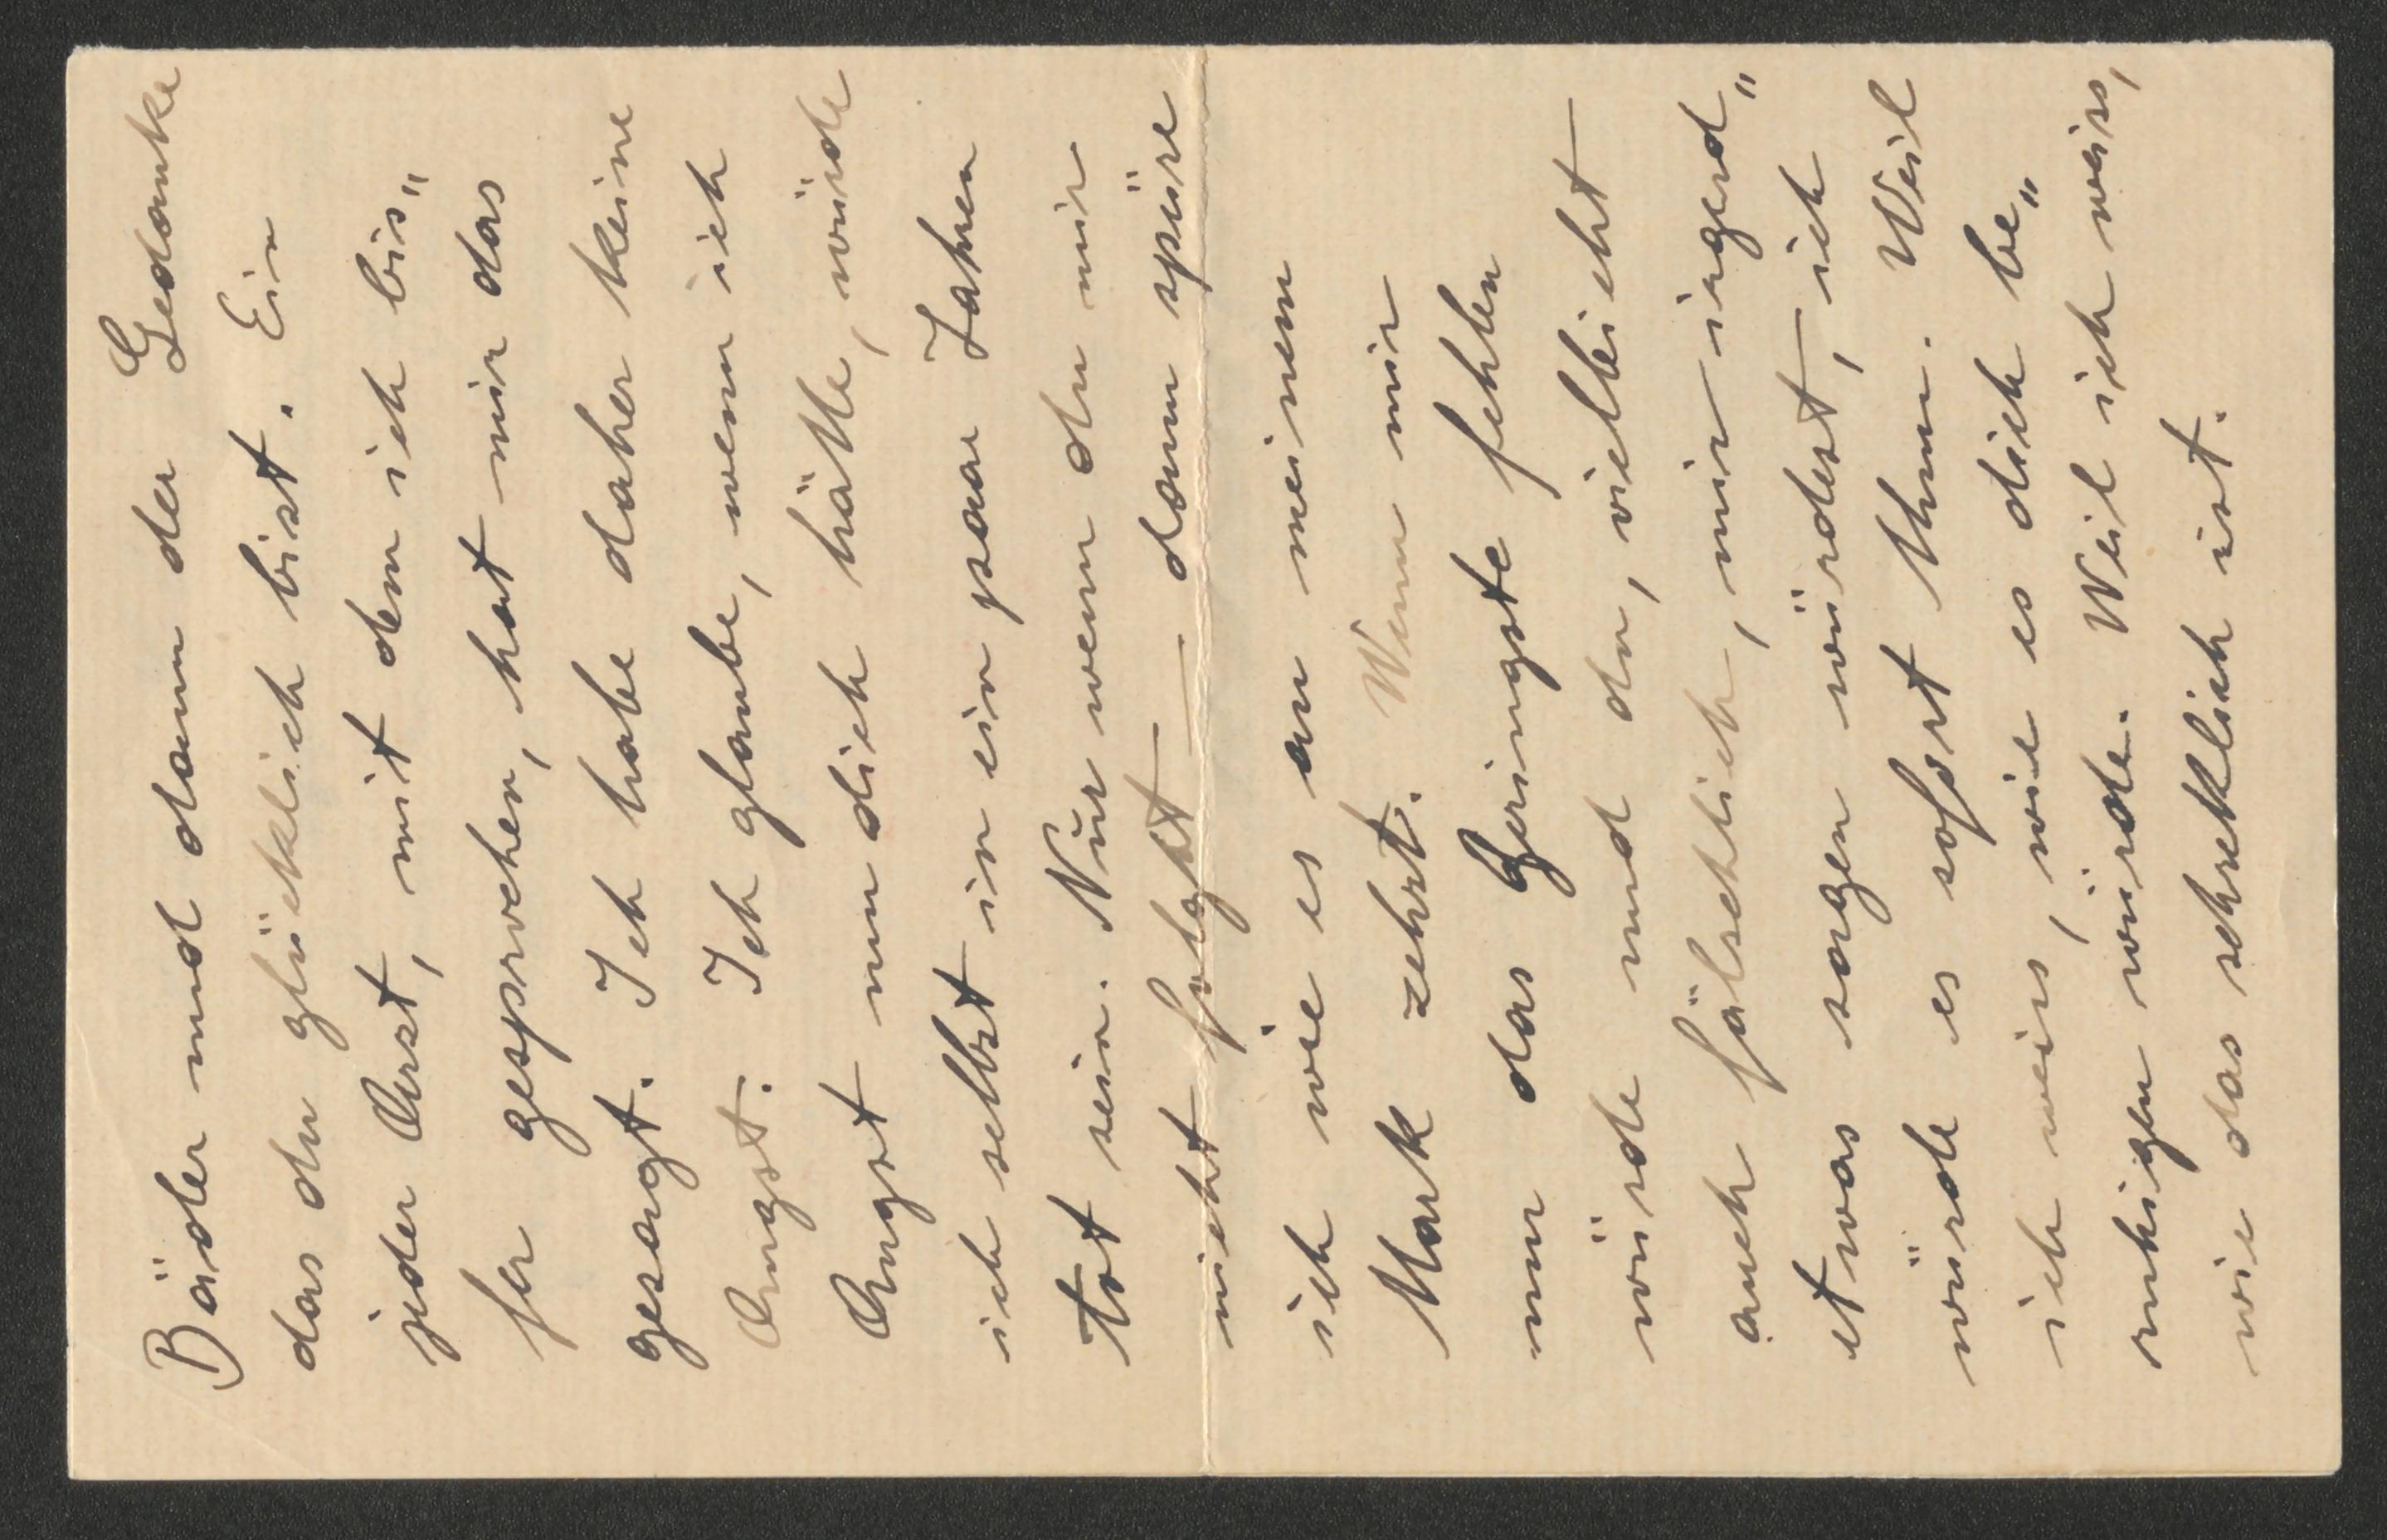 Bäder und dann der Gedanke
das du glücklich bist. Ein
jeder Arst, mit dem ich bis„
fer gesprochen, hat mir das
gesargt. Ich habe daher keine
Angst. Ich glaube, wenn ich
Angst um dich hätte, würde
ich selbst in ein paar Jahren
tot sein. Nur wenn du mir
nicht folgst — dann spüre
ich wie es an meinem
Mark zehrt. Wenn mir
nur das Geringste fehlen
würde und du, vielleicht
auch fälschlich, mir irgend„
etwas sagen würdest, ich
würde es sofort thun. Weil
ich weiss, wie es dich be„
ruhigen würde. Weil ich weiss,
wie das schrecklich ist.